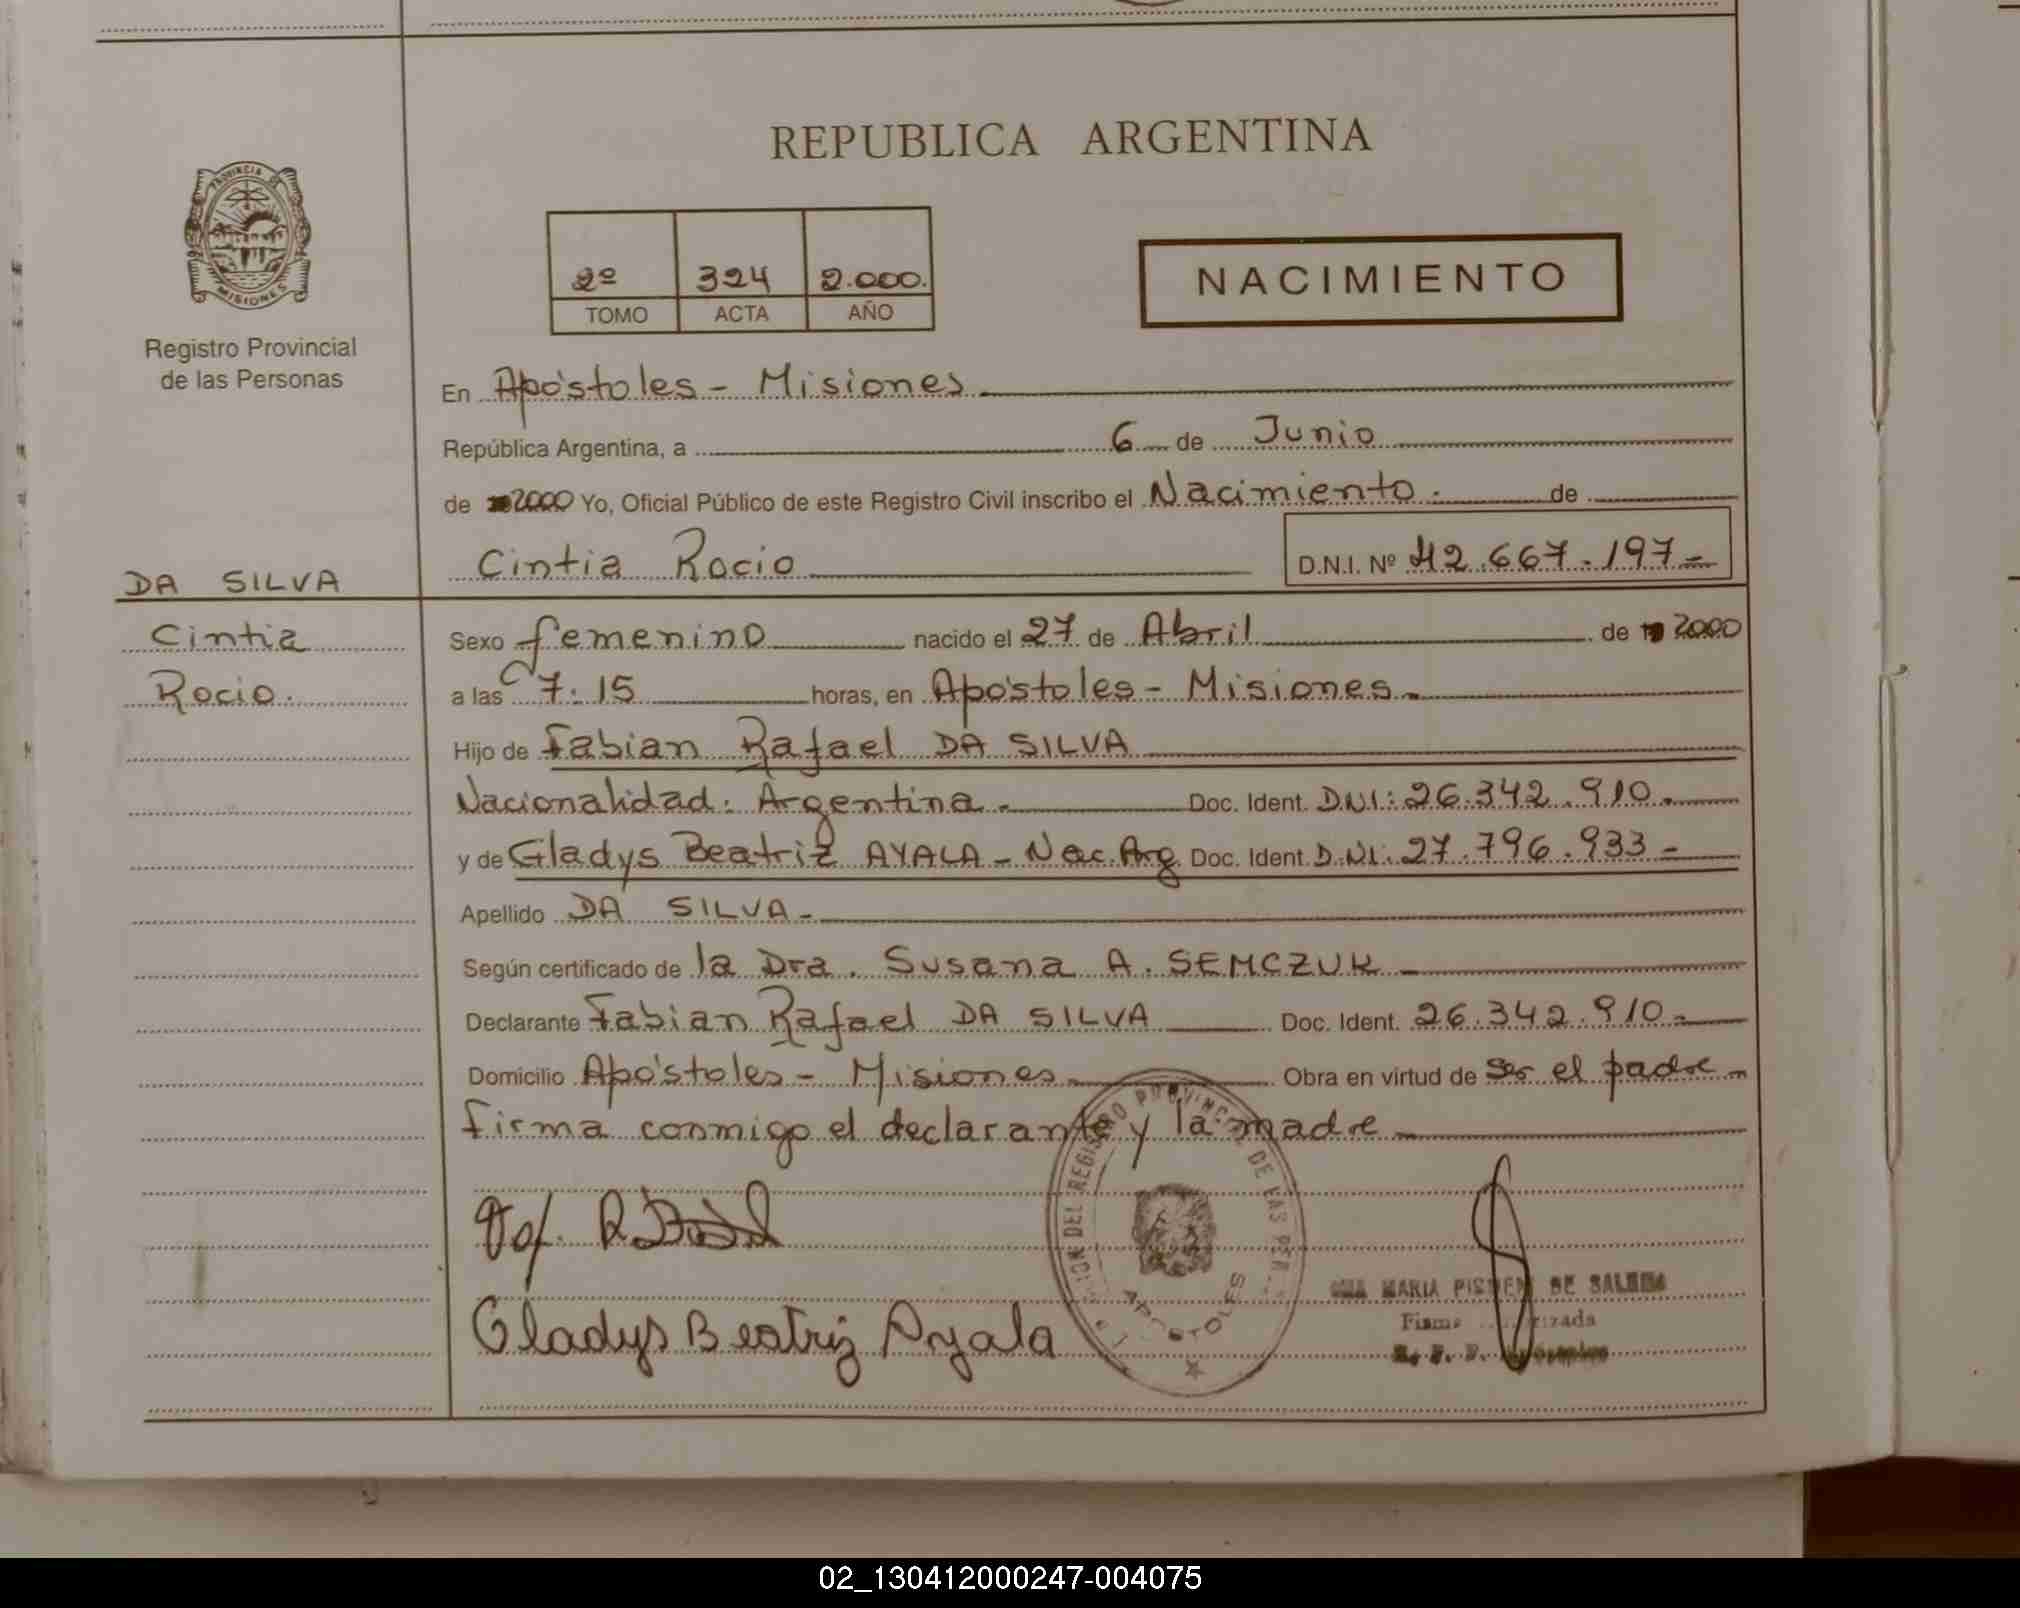 REPUBLICA ARGENTINA
PROVINCIA DE
MISIONES
2º 324 2.000.
TOMO ACTA AÑO
NACIMIENTO
Registro Provincial
de las Personas
En Apóstoles - Misiones
República Argentina, a 6 de Junio
de 2000 Yo, Oficial Público de este Registro Civil inscribo el Nacimiento. de
Cintia Rocio D.N.I. Nº 42.667.197-
DA SILVA
Cintia
Rocio.
Sexo femenino nacido el 27 de Abril de 2000
a las 7.15 horas, en Apóstoles - Misiones.
Hijo de Fabian Rafael DA SILVA
Nacionalidad: Argentina. Doc. Ident. DNI: 26.342.910.
y de Gladys Beatriz AYALA - Nac. Arg. Doc. Ident. D.NI: 27.796.933-
Apellido DA SILVA-
Según certificado de la Dra. Susana A. SEMCZUK-
Declarante Fabian Rafael DA SILVA Doc. Ident. 26.342.910-
Domicilio Apóstoles - Misiones Obra en virtud de ser el padre-
firma conmigo el declarante y la madre
DEL REGISTRO PROVINCIAL DE LAS PER
APOSTOLES
Gladys Beatriz Ayala
MARIA DE
Firma
02_130412000247-004075